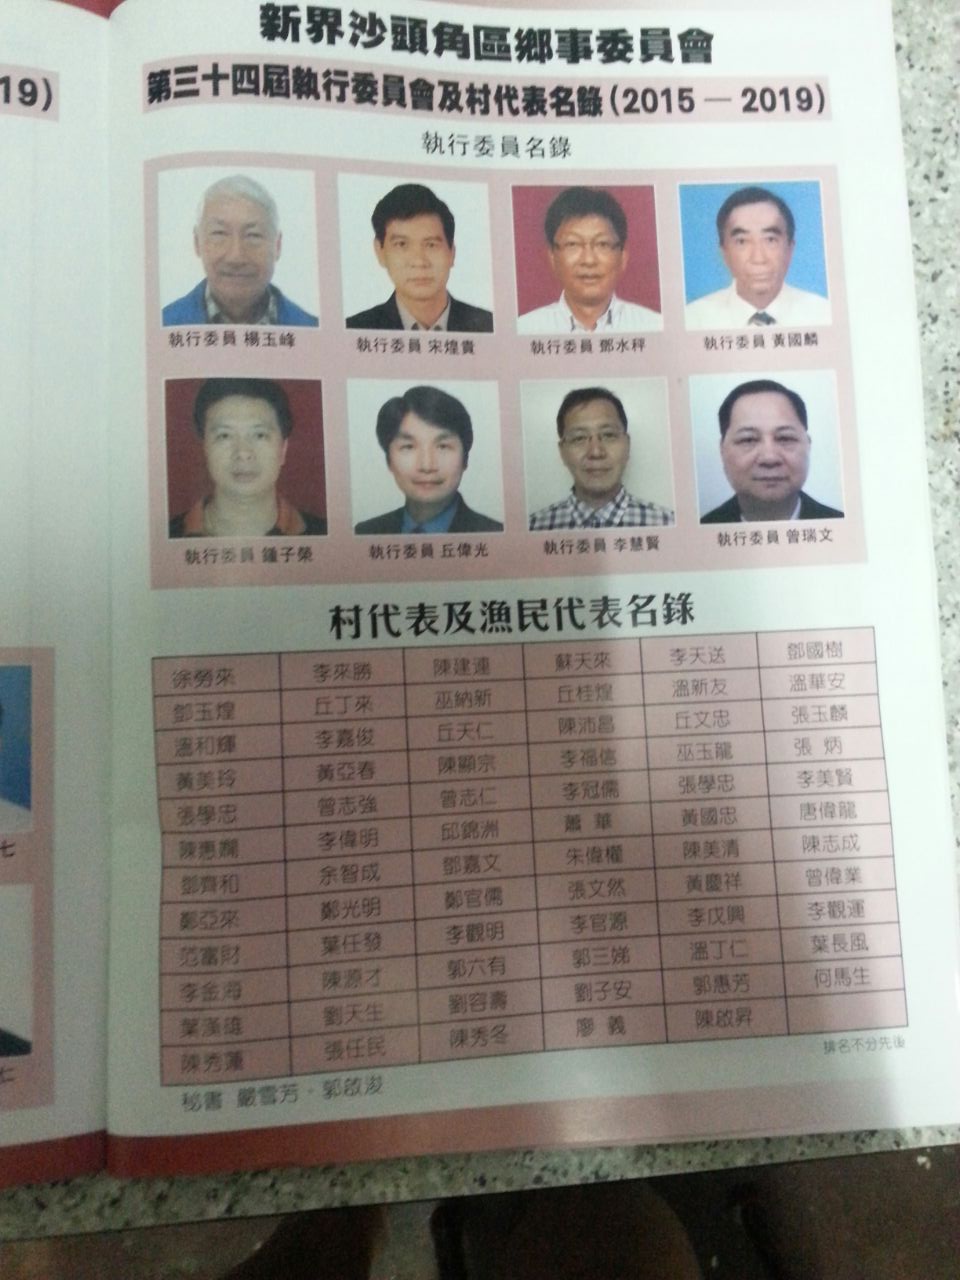 19)
新界沙頭角區鄉事委員會
第三十四屆執行委員會及村代表名錄(2015 — 2019)
執行委員名錄
執行委員 楊玉峰 執行委員 宋煌貴 執行委員 鄧水秤 執行委員 黃國麟
執行委員 鍾子榮 執行委員 丘偉光 執行委員 李慧賢 執行委員 曾瑞文
村代表及漁民代表名錄
徐勞來 李來勝 陳建連 蘇天來 李天送 鄧國樹
鄧玉煌 丘丁來 巫納新 丘桂煌 溫新友 溫華安
溫和輝 李嘉俊 丘天仁 陳沛昌 丘文忠 張玉麟
黃美玲 黃亞春 陳顯宗 李福信 巫玉龍 張 炳
張學忠 曾志強 曾志仁 李冠儒 張學忠 李美賢
陳惠嫻 李偉明 邱錦洲 蕭 華 黃國忠 唐偉龍
鄧齊和 余智成 鄧嘉文 朱偉權 陳美清 陳志成
鄭亞來 鄭光明 鄭官儒 張文然 黃慶祥 曾偉業
范富財 葉任發 李觀明 李官源 李戊興 李觀運
李金海 陳源才 郭六有 郭三娣 溫丁仁 葉長風
葉漢雄 劉天生 劉容壽 劉子安 郭惠芳 何馬生
陳秀蓮 張任民 陳秀冬 廖 義 陳啟昇
排名不分先後
秘書 嚴雪芳、郭啟浚
七
七